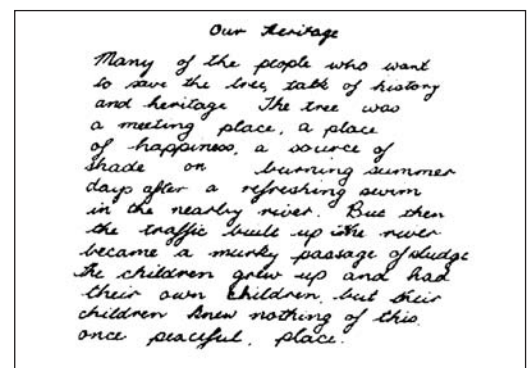 Our Heritage
Many of the people who want
to save the tree, talk of history
and heritage The tree was
a meeting place, a place
of happiness, a source of
shade on burning summer
days after a refreshing swim
in the nearby river. But then
the traffic built up the river
became a murky passage of sludge
the children grew up and had
their own children, but their
children knew nothing of this
once peaceful, place.